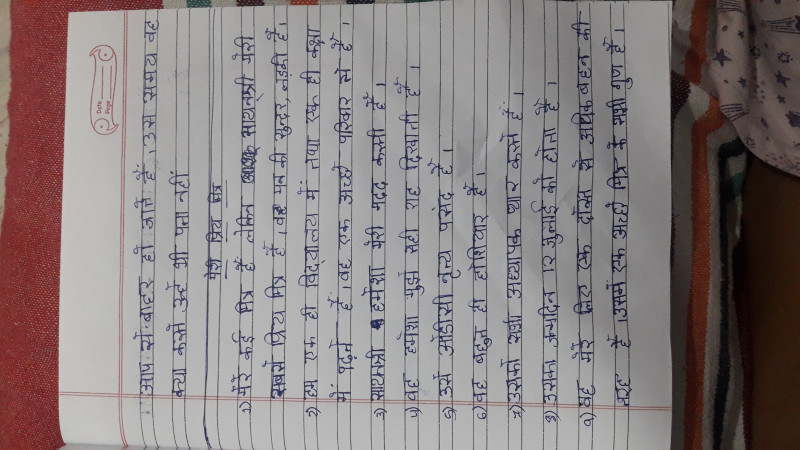 Date
Page
आप से बाहर हो जाते हैं। उस समय वह
क्या करते उन्हें भी पता नहीं
मेरी प्रिय मित्र
१) मेरे कई मित्र हैं लेकिन सायनश्री मेरी
सबसे प्रिय मित्र हैं। वह मन की सुन्दर, लड़की हैं।
२) हम एक ही विद्यालय में तथा एक ही कक्षा
में पढ़ते हैं। वह एक अच्छे परिवार से हैं।
३) सायनश्री हमेशा मेरी मदद करती हैं।
४) वह हमेशा मुझे सही राह दिखाती हैं।
५) उसे ओडिसी नृत्य पसंद हैं।
६) वह बहुत ही होशियार हैं।
७) उसको सभी अध्यापक प्यार करते हैं।
८) उसका जन्मदिन १२ जुलाई को होता हैं।
९) वह मेरे लिए एक दोस्त से अधिक बहन की
तरह हैं। उसमें एक अच्छे मित्र के सभी गुण हैं।